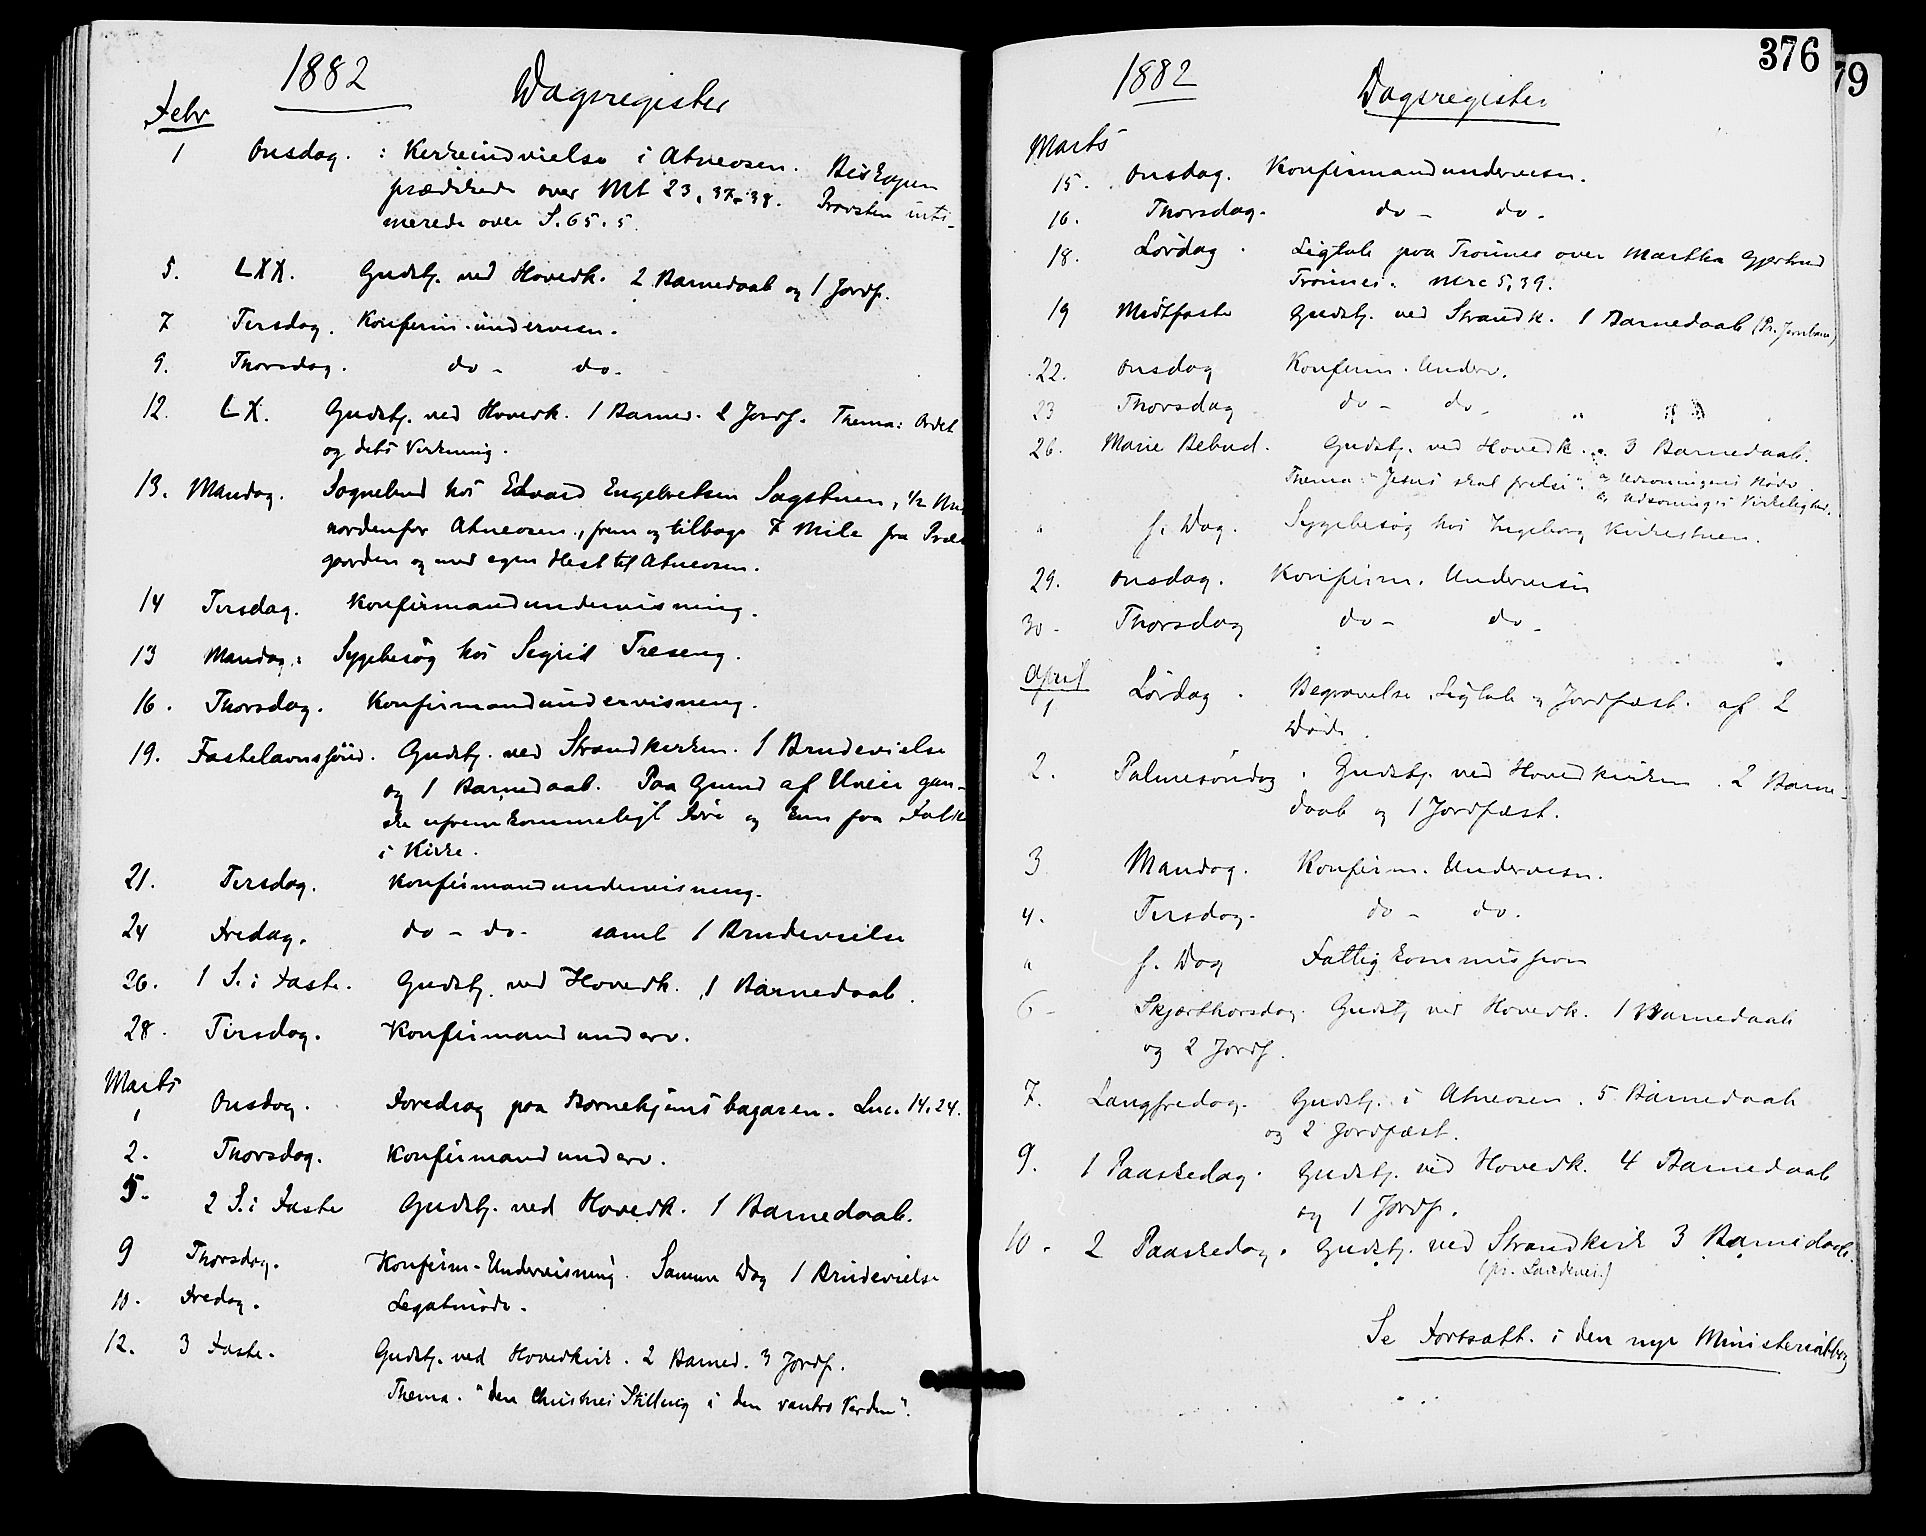 1882 Dagsregister
Febr
1 Onsdag. : Kirkeindvielse i Atneosen. Biskopen
prædikede over Mt 23, 37-39. Provsten inti-
merede over S. 65. 5.
5. LXX. Gudstj. ved Hovedk. 2 Barnedaab og 1 Jordf.
7 Tirsdag. Konfirm. undervisn.
9. Thorsdag. do - do.
12. LX. Gudstj. ved Hovedk. 1 Barned. 2 Jordf. Thema: Ordet
og dets Virkning.
13. Mandag. Sognebud hos Edvard Engebretsen Sagstuen, 1/2 Mil
nordenfor Atneosen, frem og tilbage 7 Mile fra Præs
gaarden og med egen Hest til Atneosen.
14 Tirsdag. Konfirmandundervisning.
13 Mandag: Sygebesøg hos Sigrid Træseng.
16. Thorsdag. Konfirmandundervisning.
19. Fastelavnssönd. Gudstj. ved Strandkirken. 1 Brudevielse
og 1 Barnedaab. Paa Grund af Uveir gan-
ske ufremkommeligt Före og kun faa Folk
i Kirke.
21. Tirsdag. Konfirmandundervisning.
24 Fredag. do - do. samt 1 Brudevielse
26. 1 S. i Faste. Gudstj. ved Hovedk. 1 Barnedaab.
28. Tirsdag. Konfirmandunderv.
Marts
1 Onsdag. Foredrag paa Børnehjemsbazaren. Luc. 14, 24.
2. Thorsdag. Konfirmandunderv.
5. 2 S. i Faste Gudstj. ved Hovedk. 1 Barnedaab.
9 Thorsdag. Konfirm-Undervisning. Samme Dag 1 Brudevielse
10. Fredag. Legatmöde.
12. 3 Faste. Gudstj. ved Hovedkirk. 2 Barned. 3 Jordf.
Thema. "Den Christnes Stilling i den vantro Verden".
376
79
1882 Dagsregister
Marts
15. Onsdag. Konfirmandundervisn.
16. Thorsdag. do - do.
18. Lördag. Ligtale paa Trönnes over Martha Gjertrud
Trönnes. Mrc 5, 39.
19 Midtfaste Gudstj. ved Strandk. 1 Barnedaab (Pr. Jernbane)
22. Onsdag Konfirm. Underv.
23 Thorsdag do - do.
26. Marie Bebud. Gudstj. ved Hovedk. 3 Barnedaab.
Thema: "Jesus skal frelse". a, Udsoningens Nöd.
b, Udsoninges Virkelighed.
" s. Dag. Sygebesøg hos Ingeborg Kvernstuen.
29. Onsdag. Konfirm. Undervisn
30. Thorsdag do - do.
April
1 Lördag. Begravelse. Ligtale og Jordfæst. af 2
Döde.
2. Palmesöndag. Gudstj. ved Hovedkirken. 2 Barne-
daab og 1 Jordfæst.
3 Mandag. Konfirm. Undervisn.
4. Tirsdag. do - do.
" s. Dag Fattigkommission
6 Skjærthorsdag. Gudstj ved Hovedk. 1 Barnedaab
og 2 Jordf.
7. Langfredag. Gudstj. i Atneosen. 5 Barnedaab
og 2 Jordfæst.
9. 1 Paaskedag. Gudstj. ved Hovedk. 4 Barnedaab
og 1 Jordf.
10. 2 Paaskedag. Gudstj. ved Strandkirk 3 Barnedaab.
(pr. Landevei.)
Se Fortsætt. i den nye Ministerialbog